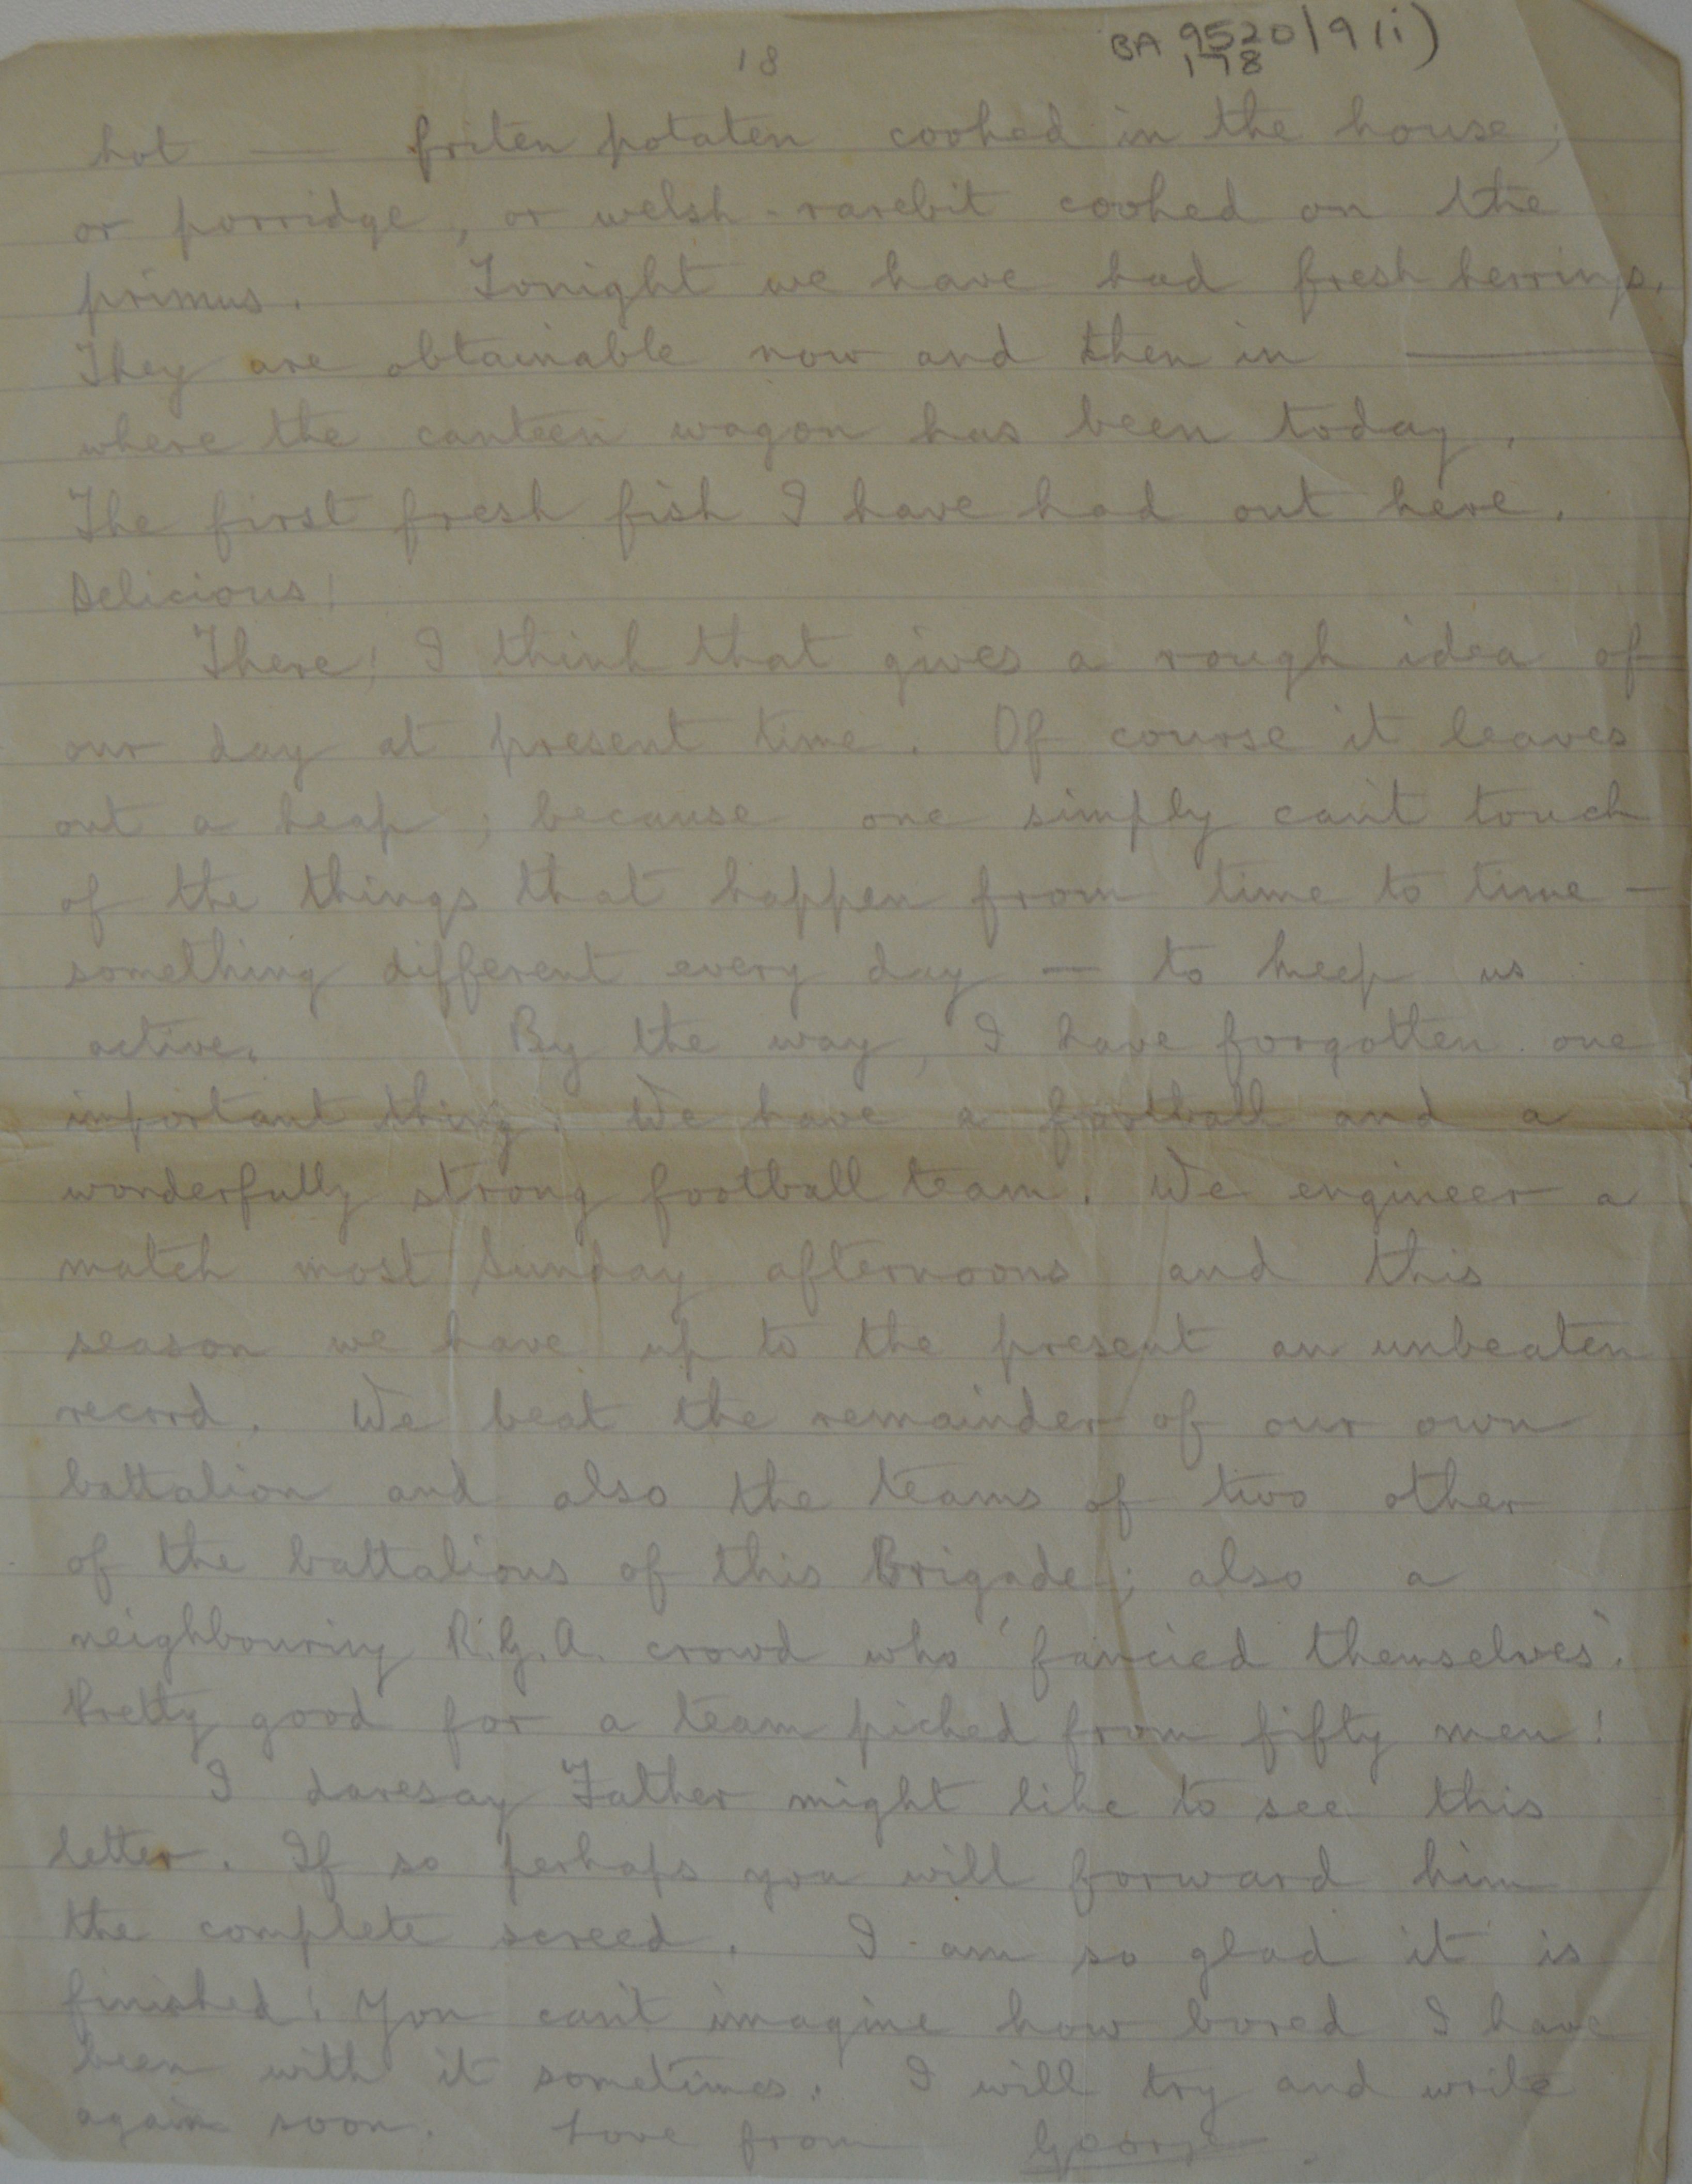 18
BA 9520/9(i)
178
hot — friten potaten cooked in the house;
or porridge, or welsh-rarebit cooked on the
primus. Tonight we have had fresh herrings.
They are obtainable now and then in ———
where the canteen wagon has been today.
The first fresh fish I have had out here.
Delicious!
There! I think that gives a rough idea of
our day at present time. Of course it leaves
out a heap; because one simply can't touch
of the things that happen from time to time —
something different every day — to keep us
active. By the way, I have forgotten one
important thing. We have a football and a
wonderfully strong football team. We engineer a
match most Sunday afternoons and this
season we have up to the present an unbeaten
record. We beat the remainder of our own
battalion and also the teams of two other
of the battalions of this Brigade; also a
neighbouring R.G.A. crowd who 'fancied themselves'.
Pretty good for a team picked from fifty men!
I daresay Father might like to see this
letter. If so perhaps you will forward him
the complete screed. I am so glad it is
finished! You can't imagine how bored I have
been with it sometimes. I will try and write
again soon. Love from George.